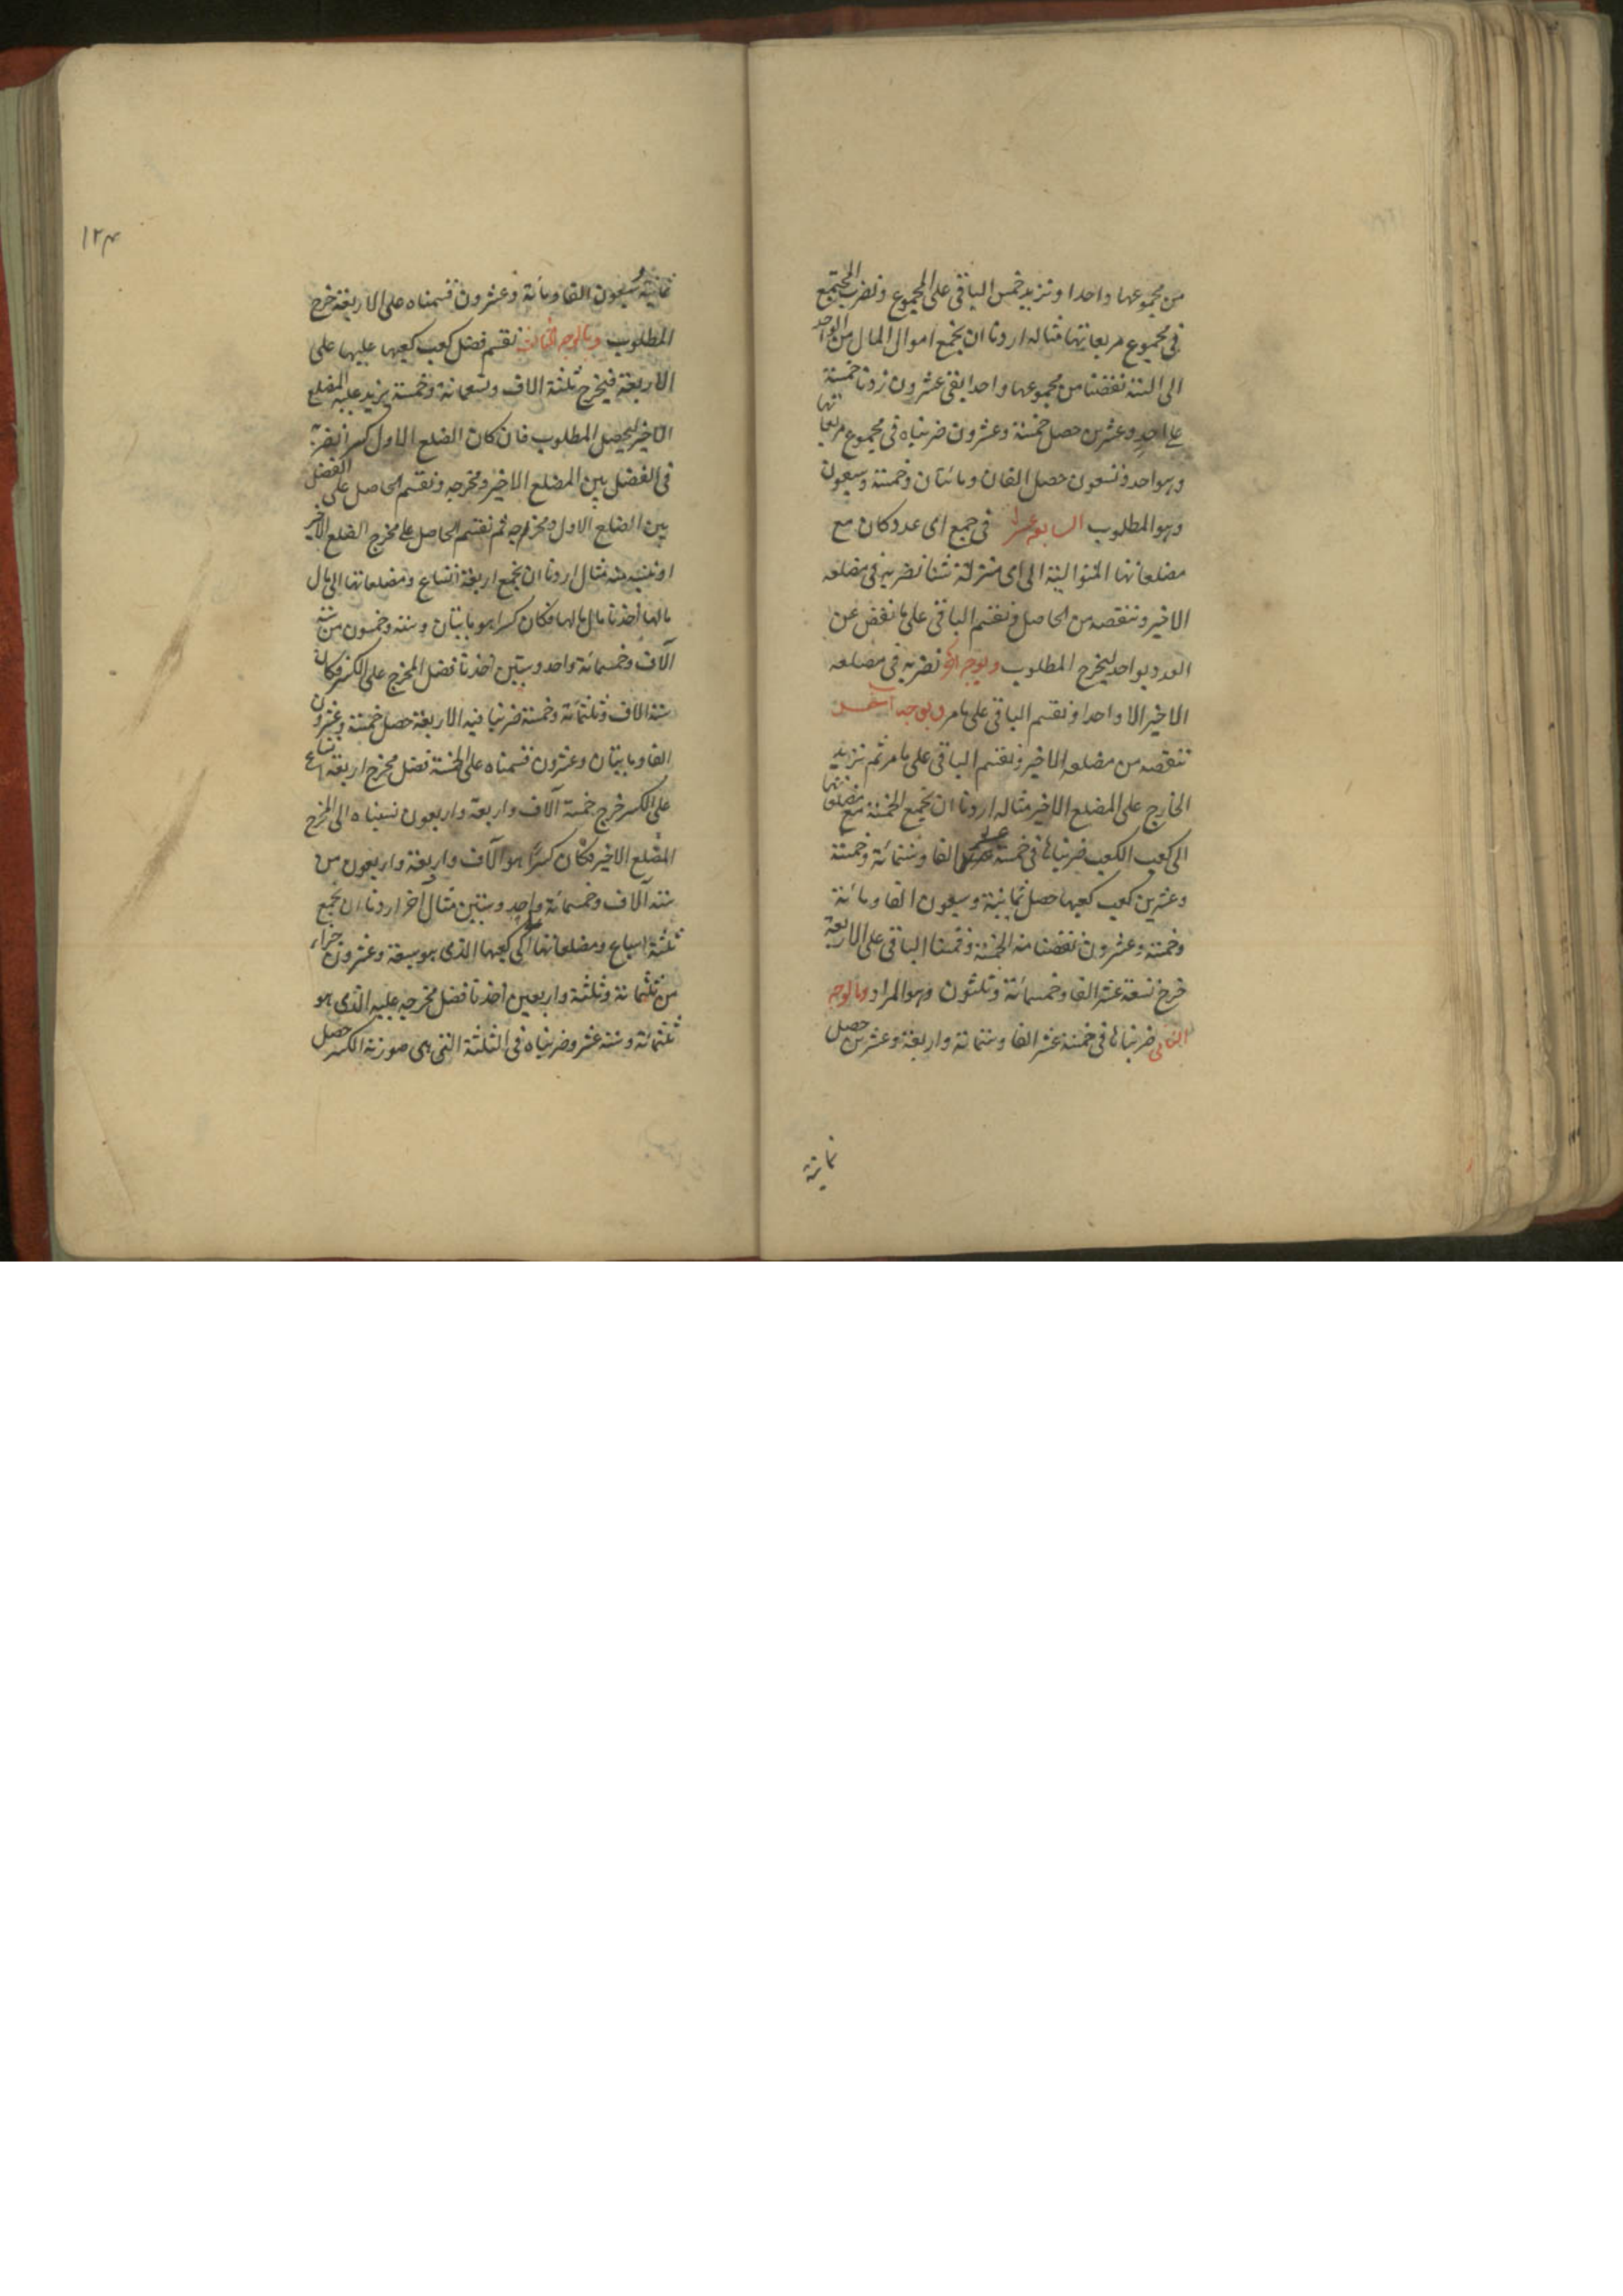 من مجموعها واحدا و نزيد خمس الباقى على المجموع و نضرب المجتمع
فى مجموع مربعاتها مثاله اردنا ان نجمع اموال المال من الواحد
الى الستة نقصنا من مجموعها واحدا بقى عشرون زدنا خمسة
على احد وعشرين حصل خمسة وعشرون ضربناه فى مجموع مربعاتها
وهو احد و تسعون حصل الفان و مائتان و خمسة و سبعون
وهو المطلوب السابعة عشر فى جمع اى عدد كان مع
مضلعاتها المتوالية الى اى منزلة شئنا نضربه فى مضلعه
الاخير و ننقصه من الحاصل و نقسم الباقى على ما نقص عن
العدد بواحد ليخرج المطلوب و بوجه اخر نضربه فى مضلعه
الاخير الا واحدا و نقسم الباقى على ما مر و بوجه
ننقصه من مضلعه الاخير و نقسم الباقى على ما مر ثم نزيد
الخارج على المضلع الاخير مثاله اردنا ان نجمع الخمسة مع مضلعاتها
الى كعب الكعب ضربناها فى خمسة عشر الفا و ستمائة و خمسة
و عشرين كعب كعبها حصل ثمانية و سبعون الفا و مائة
و خمسة و عشرون نقصنا منه الخمسة و قسمنا الباقى على الاربعة
خرج تسعة عشر الفا و خمسمائة و ثلثون وهو المراد و بالوجه
الثانى ضربناها فى خمسة عشر الفا و ستمائة و اربعة و عشرين حصل
ثمانية
١٢٣
ثمانية و سبعون الفا و مائة و عشرون قسمناه على الاربعة خرج
المطلوب و بالوجه الثالث نقسم فضل كعب كعبها عليها على
الاربعة فيخرج ثلثة الاف و تسعمائة و خمسة يزيد عليه المضلع
الاخير ليحصل المطلوب فان كان الضلع الاول كسرا نضربه
فى الفضل بين المضلع الاخير و مخرجه و نقسم الحاصل على الفضل
بين الضلع الاول و مخرجه ثم نقسم الحاصل على مخرج الضلع الاخير
او ننسبه منه مثال اردنا ان نجمع اربعة اتساع و مضلعاتها الى مال
مالها اخذنا مال مالها فكان كسرا هو مايتان و ستة و خمسون من ستة
آلاف و خمسمائة و احد و ستين اخذنا فضل المخرج على الكسر فكان
ستة الاف و ثلثمائة و خمسة ضربنا فيه الاربعة حصل خمسة و عشرون
الفا و مايتان و عشرون قسمناه على الخمسة فضل مخرج اربعة اتساع
على الكسر خرج خمسة آلاف و اربعة و اربعون نسبناه الى المخرج
المضلع الاخير فكان كسرا هو آلاف و اربعة و اربعون من
ستة آلاف و خمسمائة و احد و ستين مثال آخر اردنا ان نجمع
ثلثة اسباع و مضلعاتها الى كعبها الذى هو سبعة و عشرون جزاء
من ثلثمائة و ثلثة و اربعين اخذنا فضل مخرجه عليه الذى هو
ثلثمائة و ستة عشر و ضربناه فى الثلثة التى هى صورة الكسر حصل